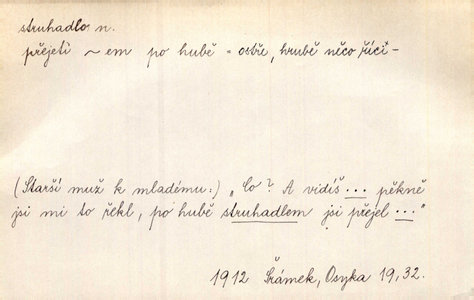 struhadlo n.
přejeti ~ em po hubě = ostře, hrubě něco říci –
(Starší muž k mladému:) „Co? A vidíš ... pěkně
jsi mi to řekl, po hubě struhadlem jsi přejel ..."
1912 Šrámek, Osyka 19, 32.